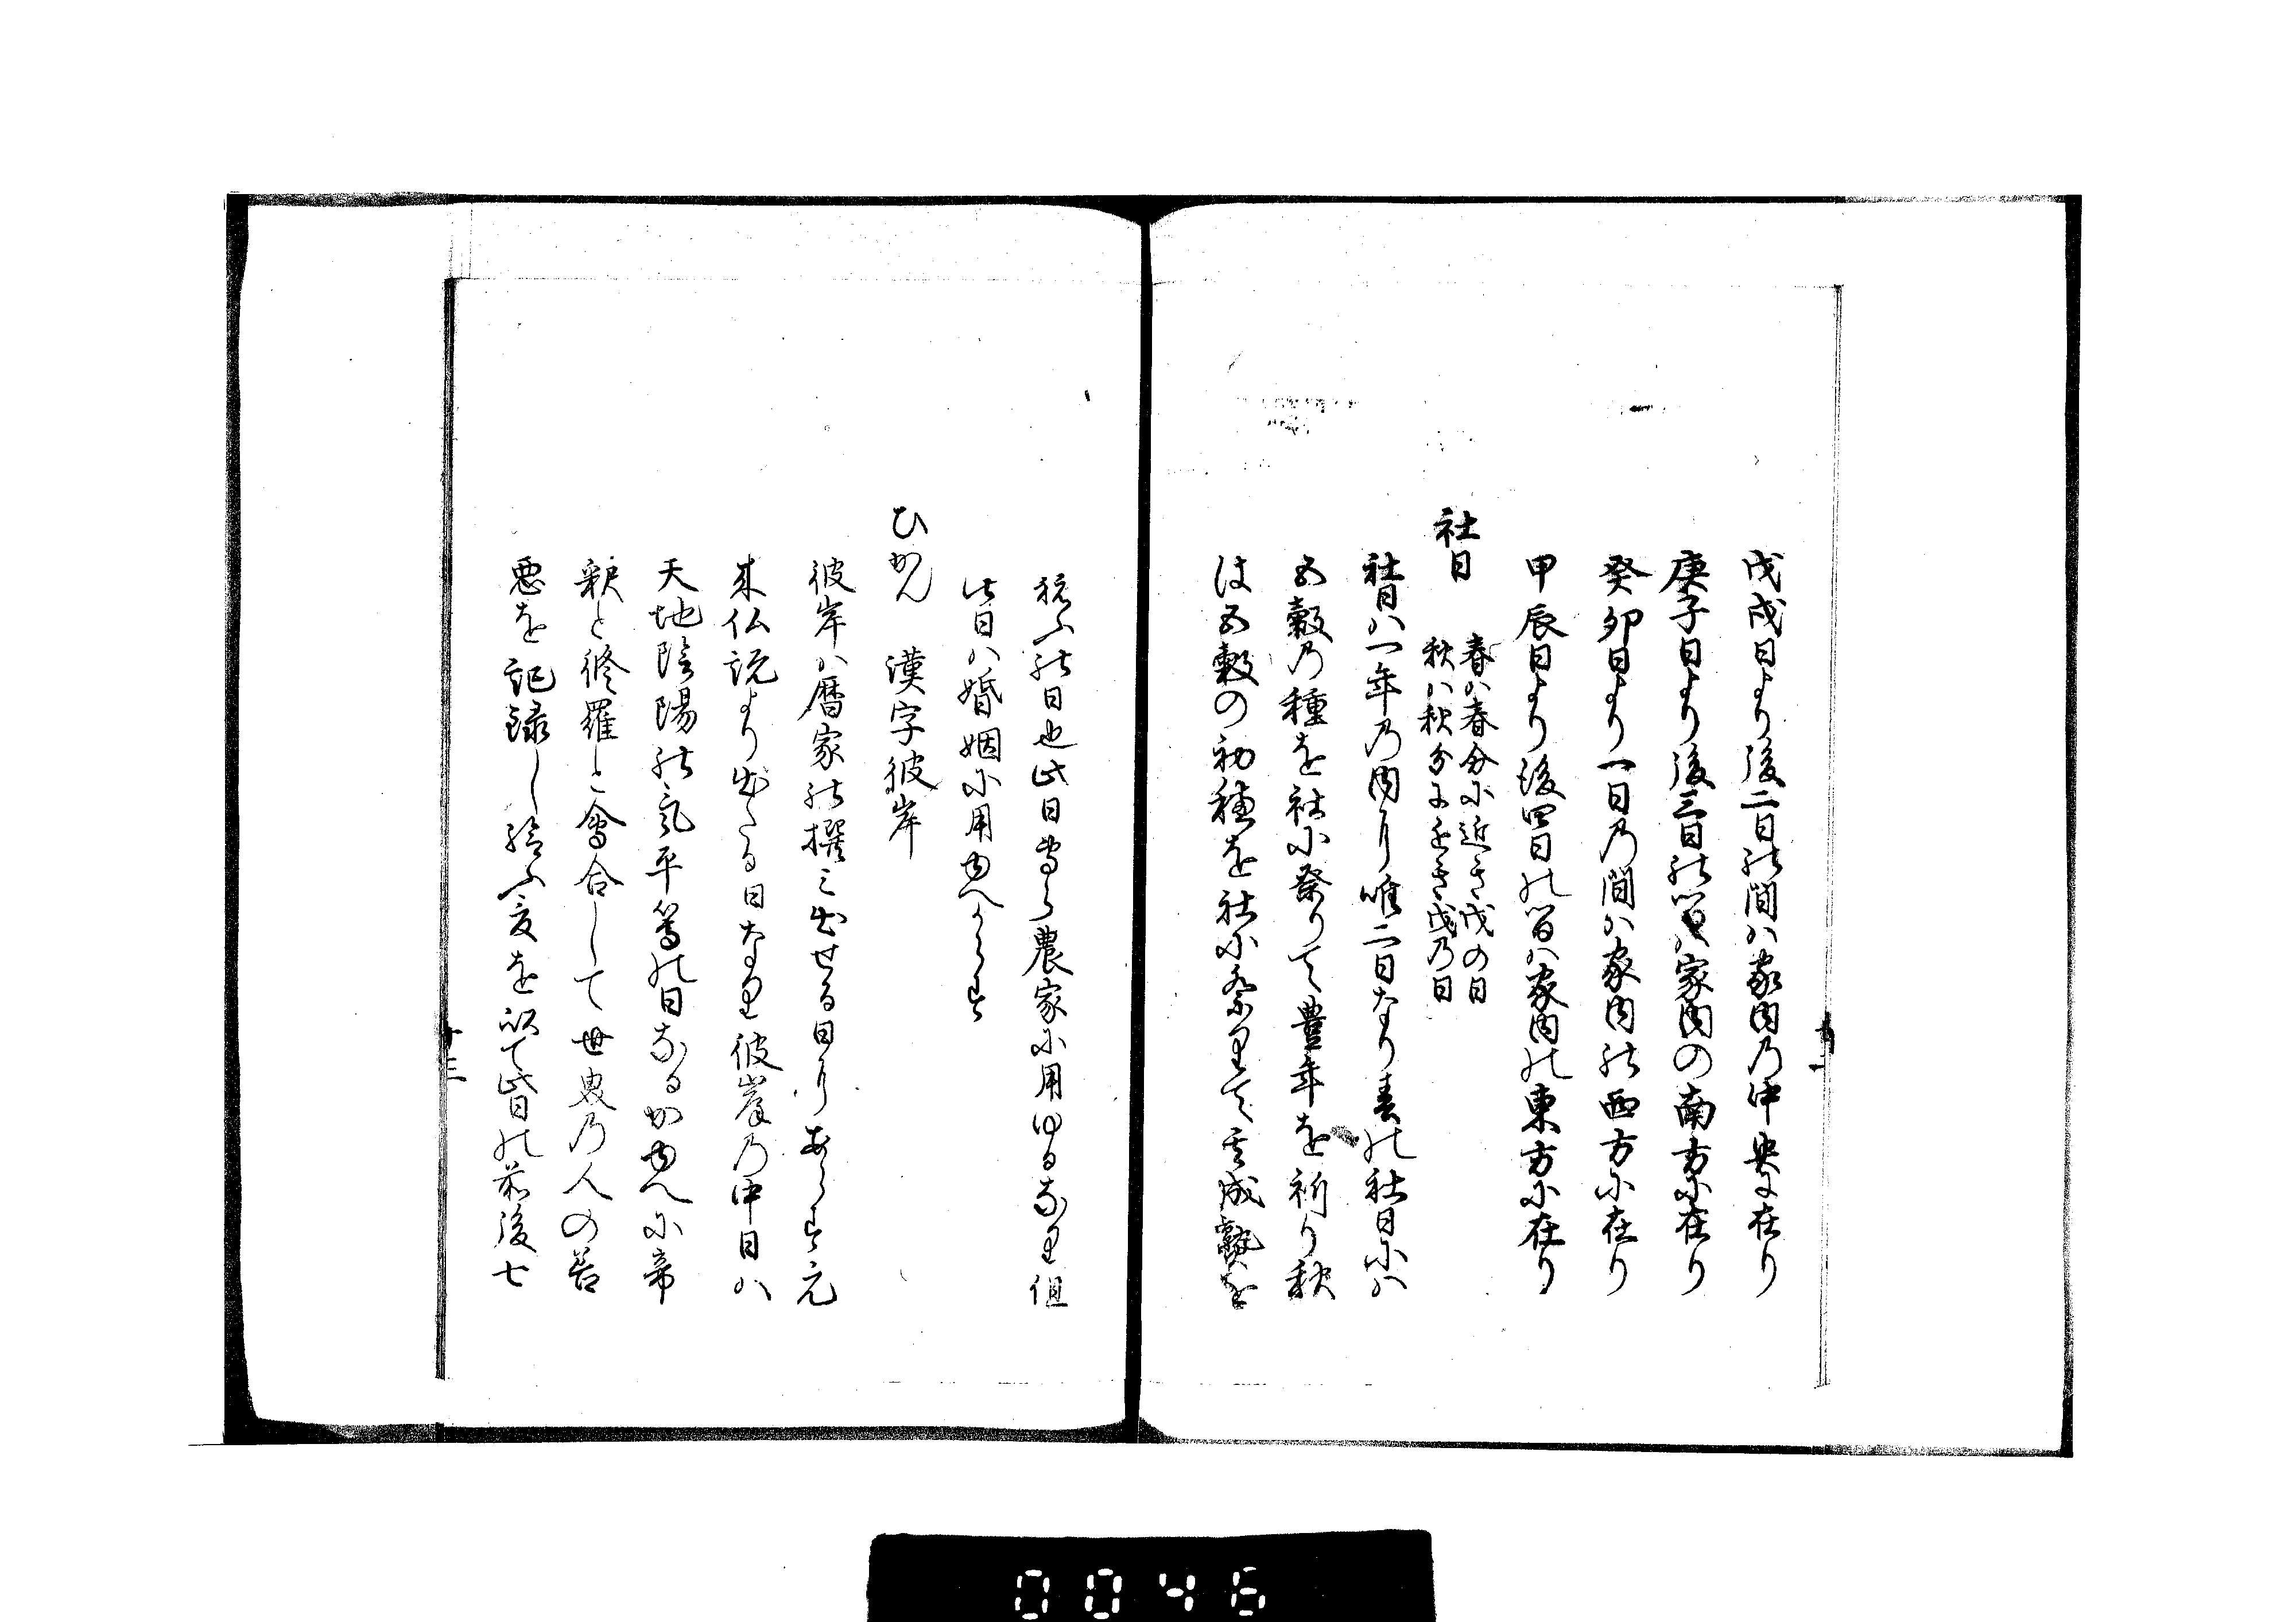 戊戌日より後二日の間ハ家内乃中央に在り
庚子日より後三日の間ハ家内の南方に在り
癸卯日より一日乃間ハ家内の西方に在り
甲辰日より後四日の間ハ家内の東方に在り
社日
春ハ春分に近き戊の日
秋ハ秋分に近き戊乃日
社日ハ一年乃内に唯二日なり春の社日にハ
五穀乃種を社に祭りて豊年を祈り秋
は五穀の初穂を社に祭りて其成熟を
祝ふの日也此日専ら農家に用ゆるなり但
此日ハ婚姻に用ゆへからす
ひかん 漢字彼岸
彼岸ハ暦家の撰ミ出せる日にあらす元
来仏説より出たる日なり彼岸乃中日ハ
天地陰陽の気平等の日なるかゆへに帝
釈と修羅と會合して世界乃人の善
悪を記録し給ふ故を以て此日の前後七
十三
0046